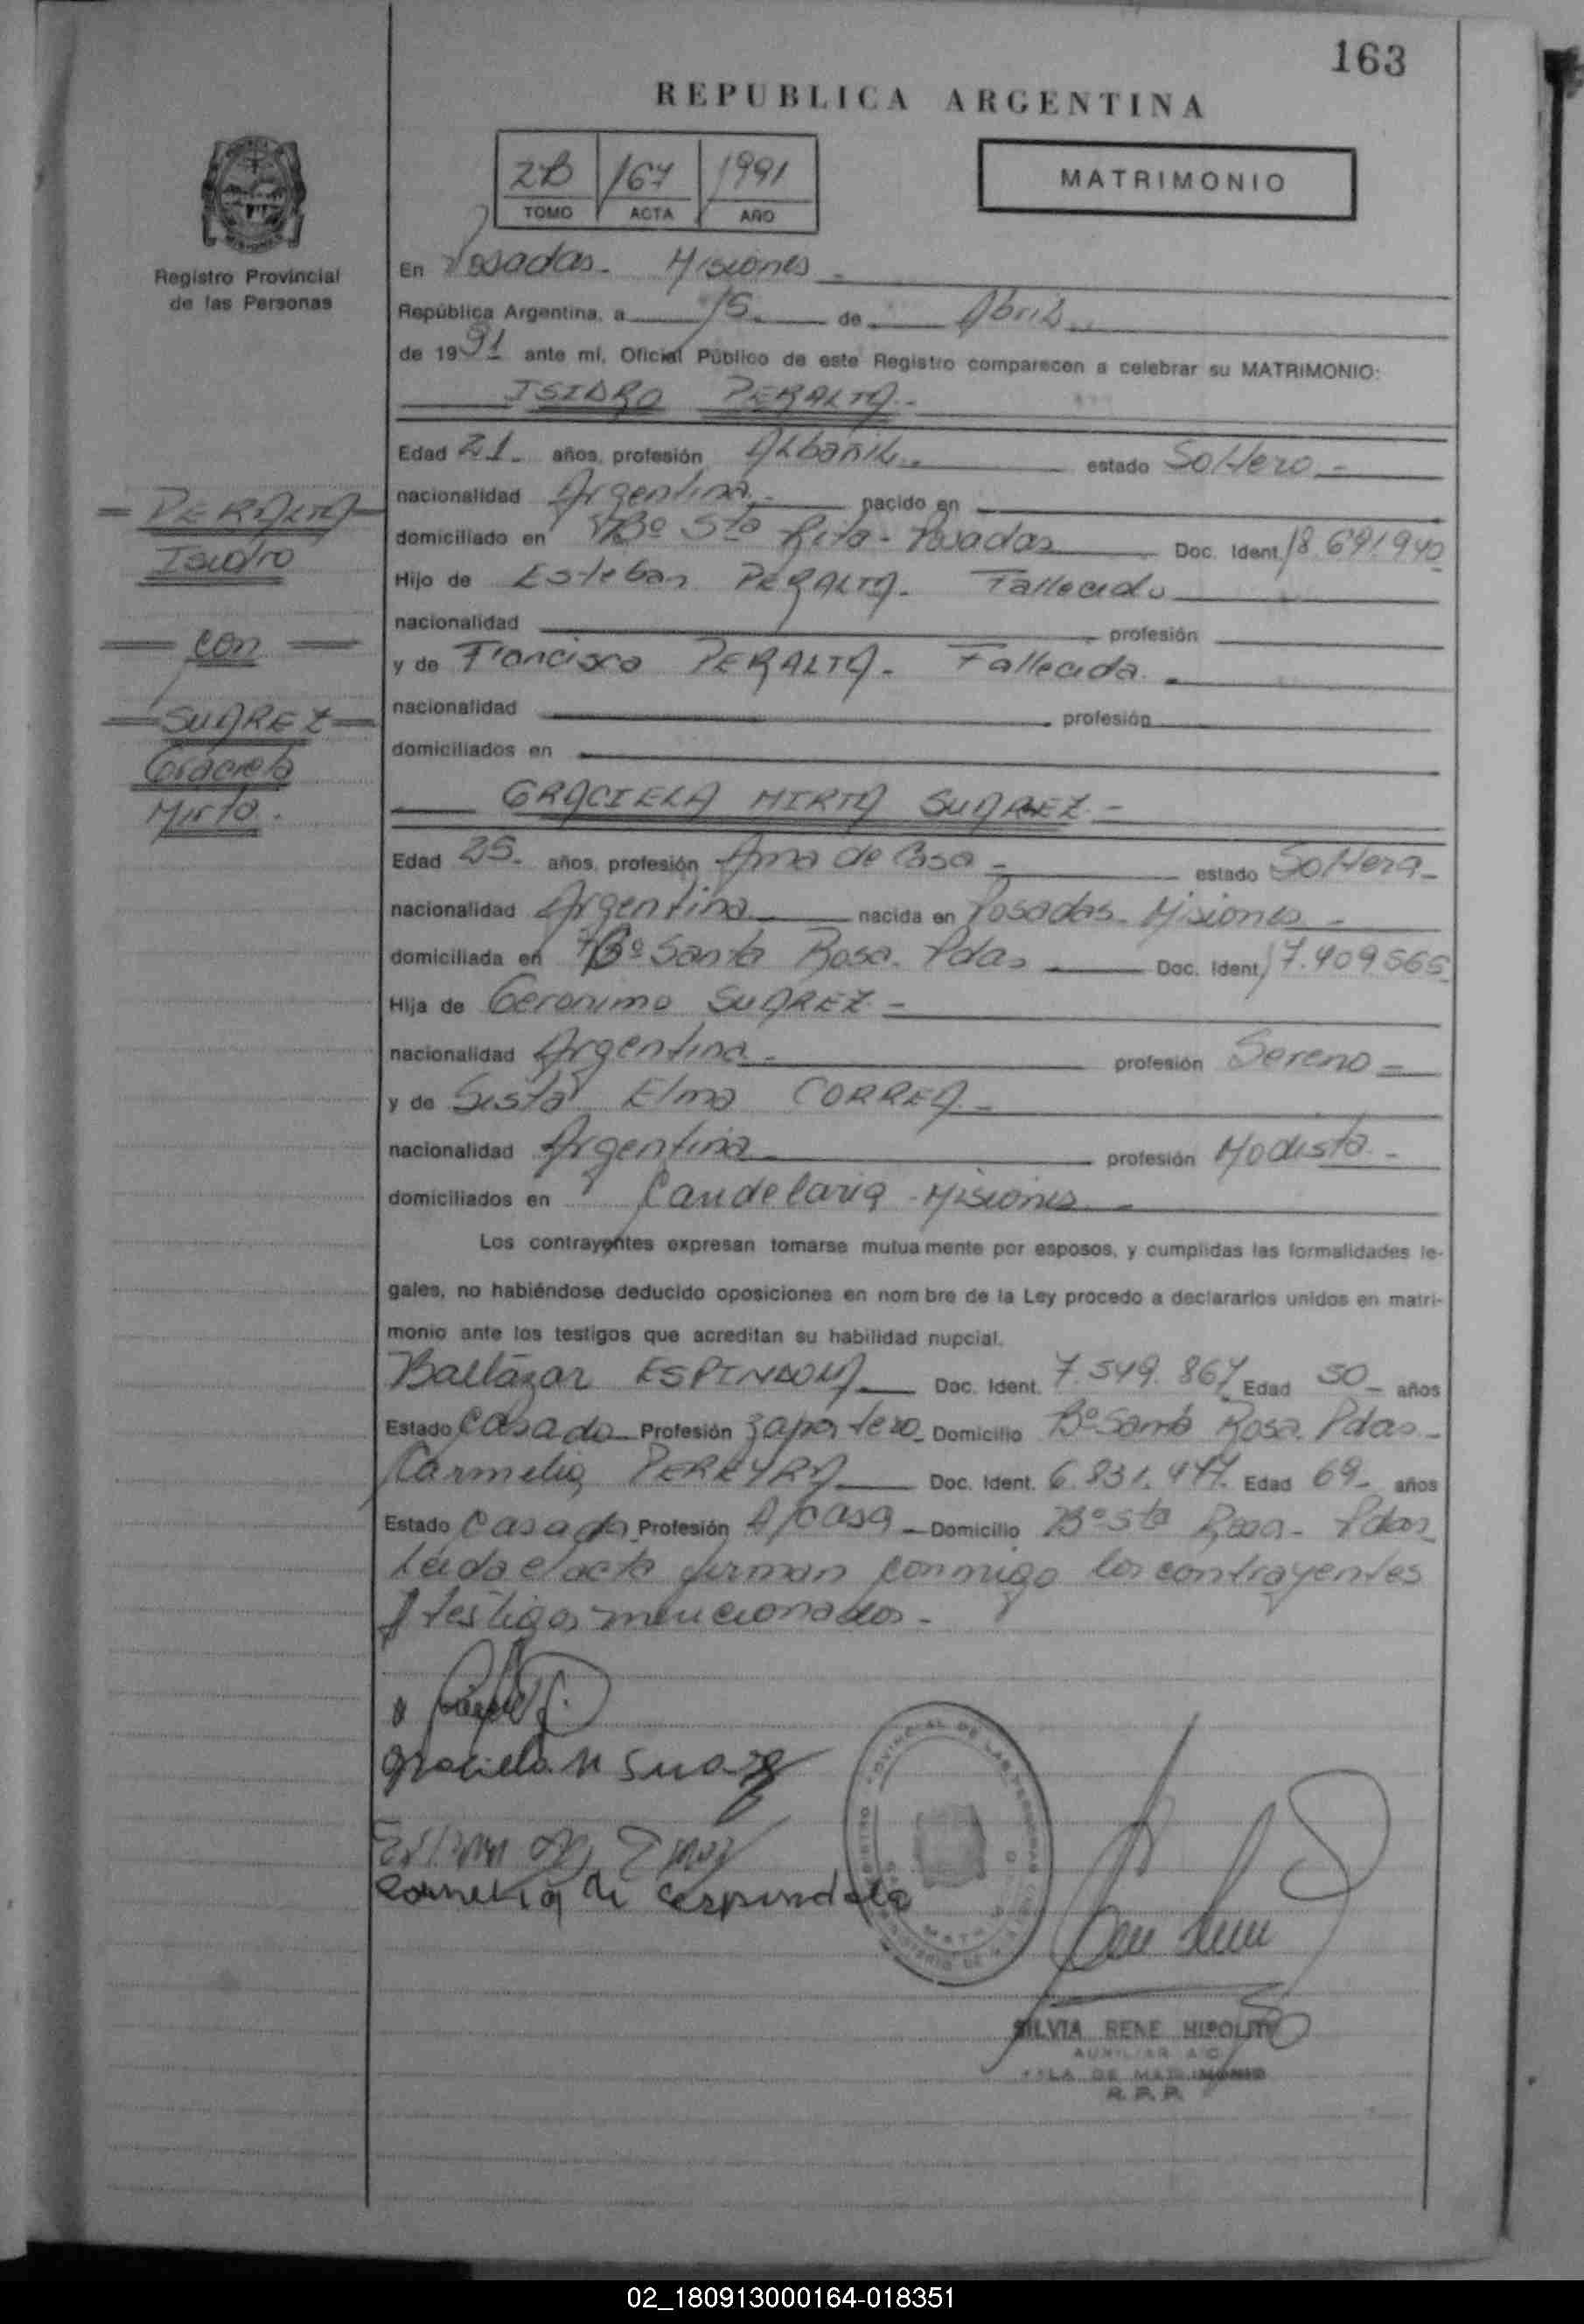 163
REPUBLICA ARGENTINA
2B 167 1991
TOMO ACTA AÑO
MATRIMONIO
Registro Provincial
de las Personas
En Posadas - Misiones -
República Argentina, a 15 de Abril
de 1991 ante mí, Oficial Público de este Registro comparecen a celebrar su MATRIMONIO:
ISIDRO PERALTA -
Edad 21 - años, profesión Albañil estado Soltero -
nacionalidad Argentina - nacido en
domiciliado en Bº Sta Rita - Posadas Doc. Ident. 18.691.940
Hijo de Esteban PERALTA - Fallecido
nacionalidad profesión
y de Francisca PERALTA - Fallecida -
nacionalidad profesión
domiciliados en
= PERALTA =
Isidro
= con =
= SUAREZ =
Graciela
Mirta -
GRACIELA MIRTA SUAREZ -
Edad 25 - años, profesión Ama de Casa - estado Soltera -
nacionalidad Argentina nacida en Posadas - Misiones -
domiciliada en Bº Santa Rosa - Pdas Doc. Ident. 17.409.565
Hija de Geronimo SUAREZ -
nacionalidad Argentina - profesión Sereno =
y de Sista Elma CORREA -
nacionalidad Argentina - profesión Modista -
domiciliados en Candelaria - Misiones -
Los contrayentes expresan tomarse mutua mente por esposos, y cumplidas las formalidades le-
gales, no habiéndose deducido oposiciones en nom bre de la Ley procedo a declararlos unidos en matri-
monio ante los testigos que acreditan su habilidad nupcial.
Baltázar ESPINDOLA Doc. Ident. 7.549.867 Edad 50 - años
Estado Casado Profesión Zapatero - Domicilio Bº Santa Rosa - Pdas -
Carmelia PEREYRA Doc. Ident. 6.831.447 Edad 69 - años
Estado Casada Profesión A/casa - Domicilio Bº Sta Rosa - Pdas -
Leída el acta firman conmigo los contrayentes
y testigos mencionados -
Graciela M Suarez
de Espindola
SILVIA RENE HIPOLITO
AUXILIAR
SALA DE MATRIMONIO
R. P. P.
02_180913000164-018351